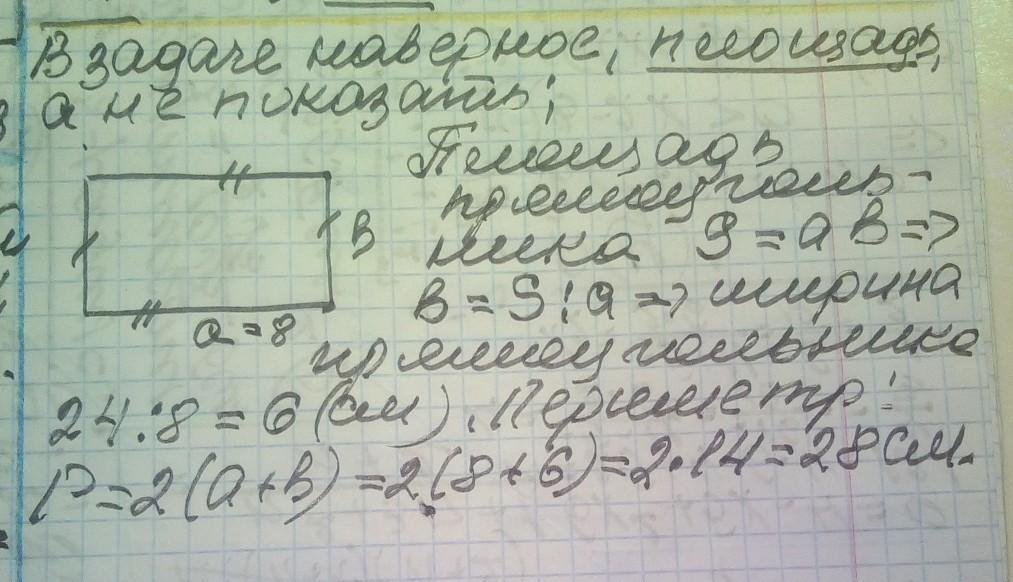 В задаче наверное, площадь,
а не показать;
Площадь
прямоуголь-
ника S = a в =>
в = S : a => ширина
в
a = 8
прямоугольника
24 : 8 = 6 (см). Периметр:
P = 2 (a + в) = 2 (8 + 6) = 2 · 14 = 28 см.